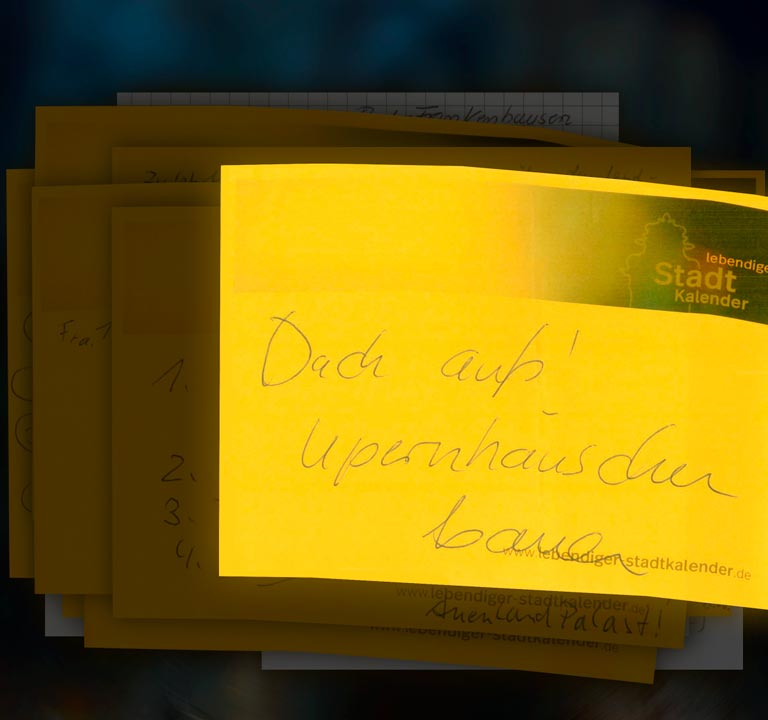 Bad Frankenhausen
lebendige
Stadt
Kalender
Fra. 1
Dach auf's
1.
Opernhäuschen
2.
3.
bauen
4.
www.lebendiger-stadtkalender.de
www.lebendiger-stadtkalender.de
Auenland Palast!
www.lebendiger-stadtkalender.de